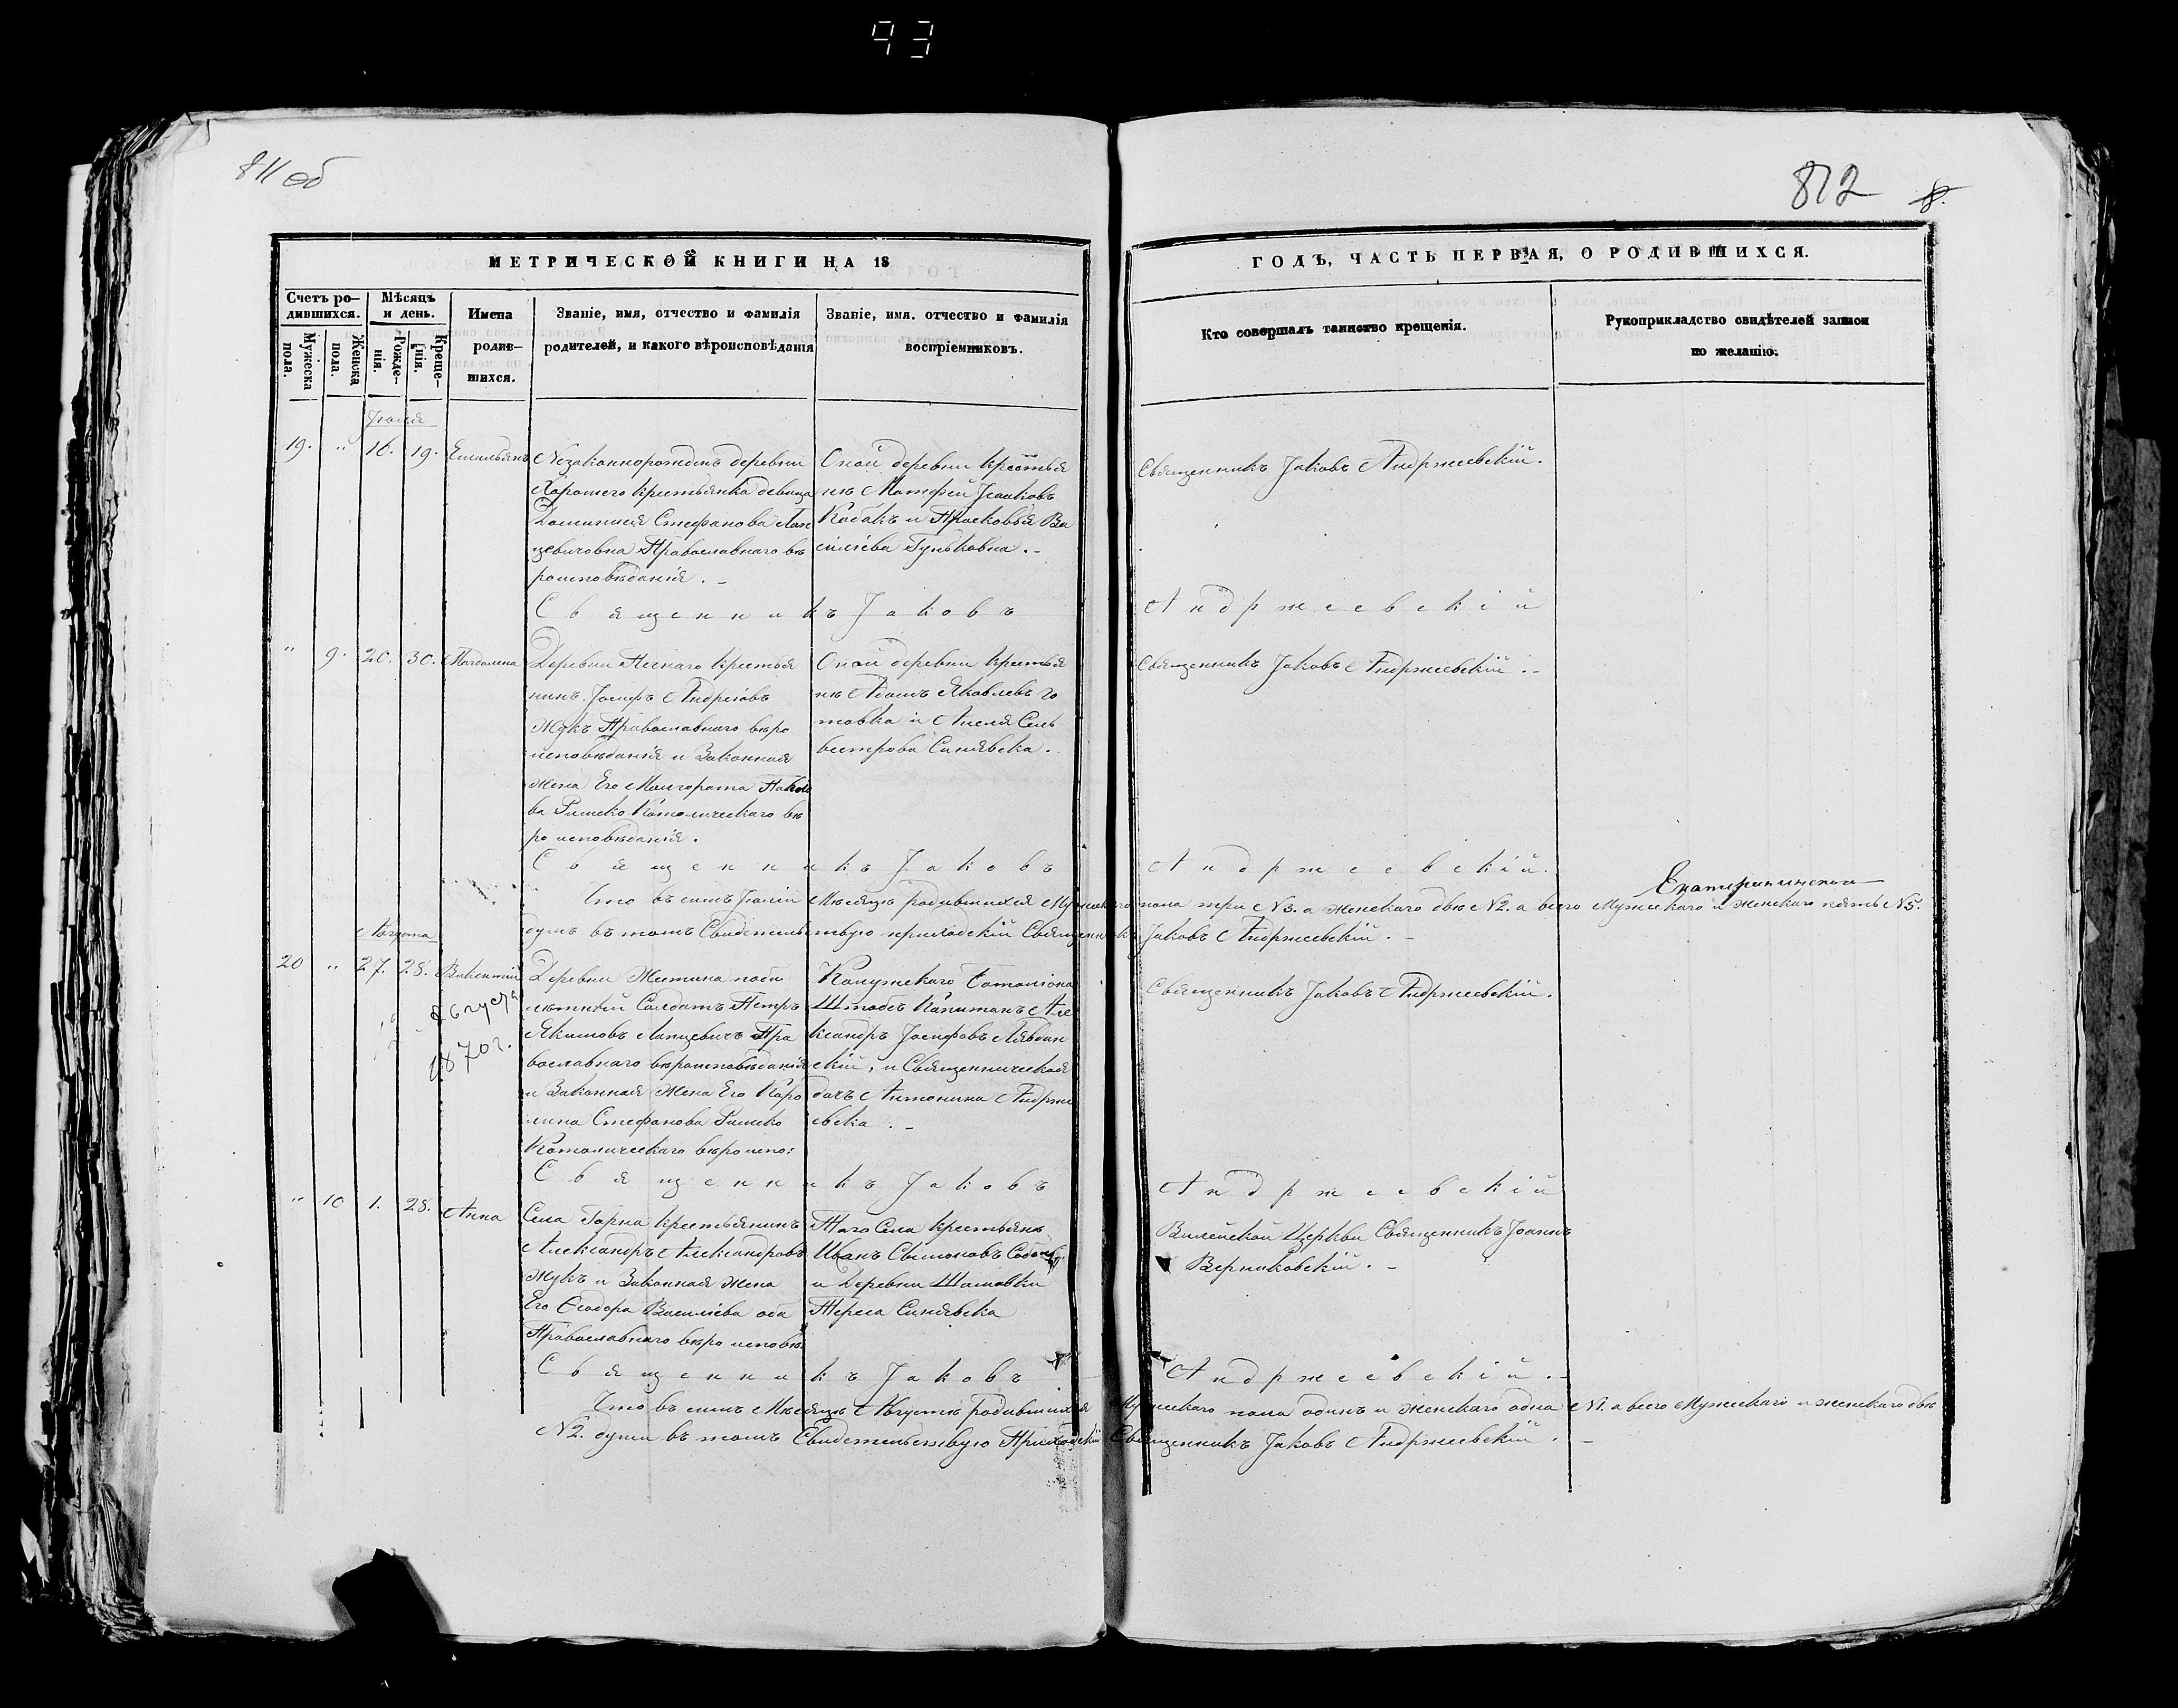 93
811 об
812
8.
МЕТРИЧЕСКОЙ КНИГИ НА 18
ГОДЪ, ЧАСТЬ ПЕРВАЯ, О РОДИВШИХСЯ.
Счетъ ро-
дившихся.
Мужеска
пола.
Женска
пола.
Мѣсяцъ
и день.
Рожде-
нія.
Креще-
нія.
Имена
родив-
шихся.
Званіе, имя, отчество и фамилія
родителей, и какого вѣроисповѣданія
Званіе, имя. отчество и фамилія
воспріемниковъ.
Кто совершалъ таинство крещенія.
Рукоприкладство свидѣтелей записи
по желанію.
19. " 16. 19. Емильянъ
Незаконнорожденъ деревни
Хорошего крестьянка девица
Стефанова Лап
цевичовна Православнаго вѣ
роисповѣданія. –
Оной деревни Крестья
нѣ Матфей Исааковъ
Козакъ и Прасковья Ва
силіева Гуньковна. –
Священникъ Іаковъ Андржеевскій.
Священникъ Іаковъ Андржеевскій
" 9. 20. 30. Магдалена
Деревни Крестья
нинъ Іосифъ Андреіовъ
Жукъ Православнаго вѣро
исповѣданія и Законная
жена Его Маргората
ва Римско Католическаго вѣ
роисповѣданія.
Оной деревни крестья
нѣ Адамъ Яковлевъ Го
товка и Анеля Силь
вестрова Синявска.
Священникъ Іаковъ Андржеевскій. –
Священникъ Іаковъ Андржеевскій.
Что въ семъ Іюлѣ Мѣсяцѣ родившихся Мужескаго пола три N3. а женскаго двѣ N2. а всего Мужескаго и женскаго пять N5.
душъ въ томъ Свидетельствую приходскій Священникъ Іаковъ Андржеевскій. –
Августа
20 " 27. 28. Викентій
августа
1870 г.
Деревни Жестина
Солдатъ Петръ
Якимовъ Лапцевичъ Пра
вославнаго вѣроисповѣданія
и Законная Жена Его Каро
лина Стефанова Римско
Католическаго вѣроиспо:
Калужскаго Баталіона
Штабсъ Капитанъ Але
ксандръ Іосифовъ
скій, и Священническая
дочъ Антонина Андрже
евска. –
Священникъ Іаковъ Андржеевскій.
Священникъ Іаковъ Андржеевскій
" 10 1. 28. Анна
Села Гарна крестьянинъ
Александръ Александровъ
Жукъ и Законная жена
Его Ѳеодора Василіева оба
Православнаго вѣро исповѣ
Того Села крестьянѣ
Иванъ Симоновъ
и Деревни Шамовки
Тереса Синявска
Вилейской Церкви Священникъ Іоаннъ
Верниковскій. –
Священникъ Іаковъ Андржеевскій. –
Что въ семъ Мѣсяцѣ Августѣ родившихся Мужескаго пола одинъ и женскаго одна N1. а всего Мужескаго и женскаго двѣ
N2. души въ томъ Свидетельствую Приходскій Священникъ Іаковъ Андржеевскій. –